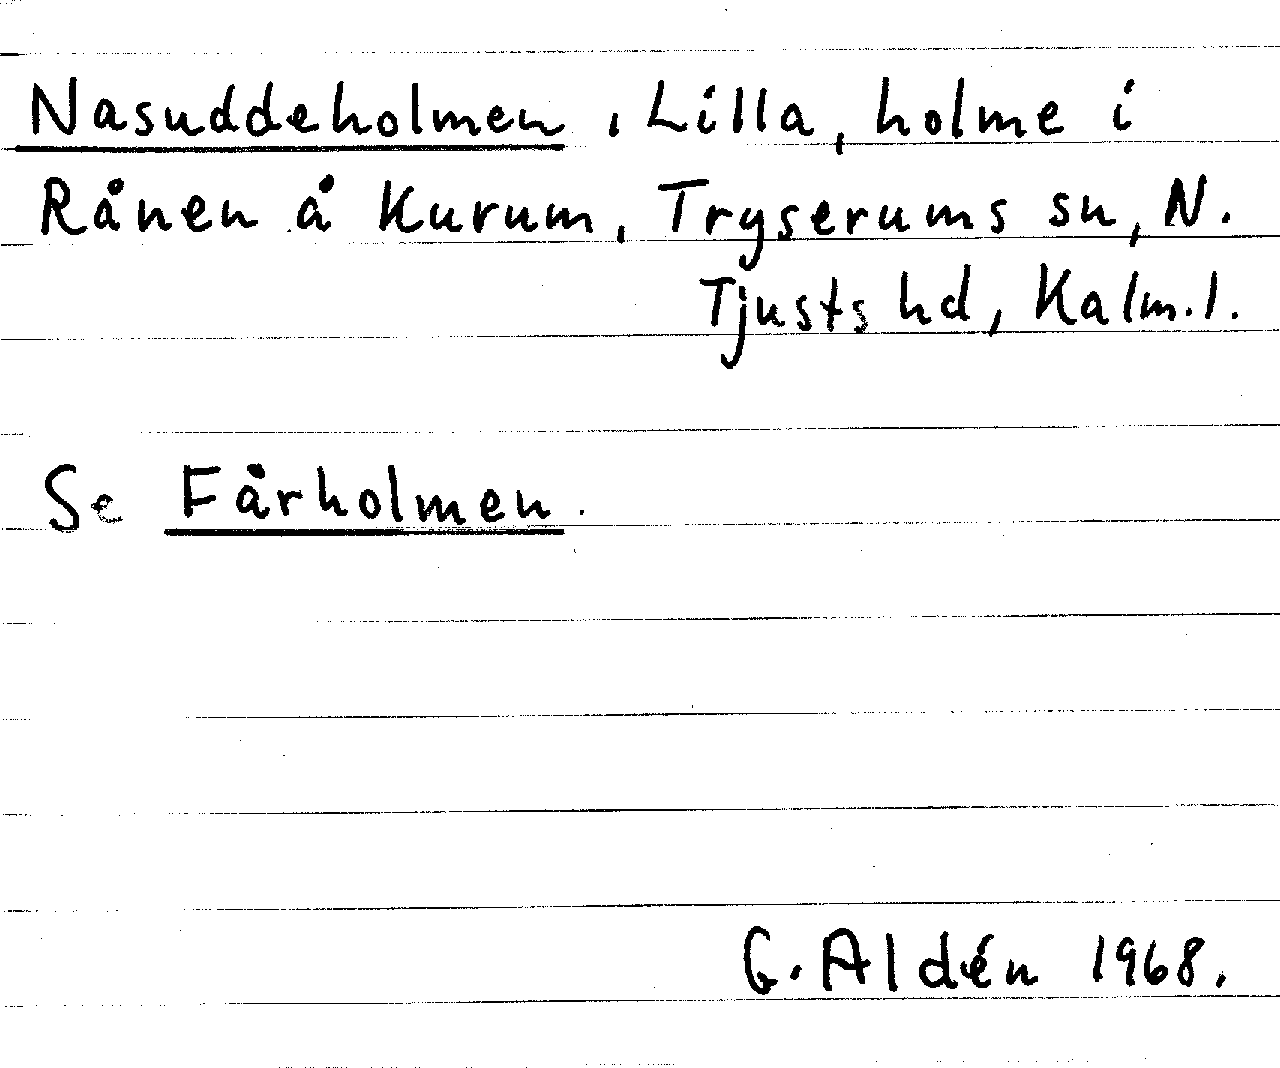 Nasuddeholmen, Lilla, holme i
Rånen å Kurum, Tryserums sn, N.
Tjusts hd, Kalm.l.
Se Fårholmen.
G. Aldén 1968.